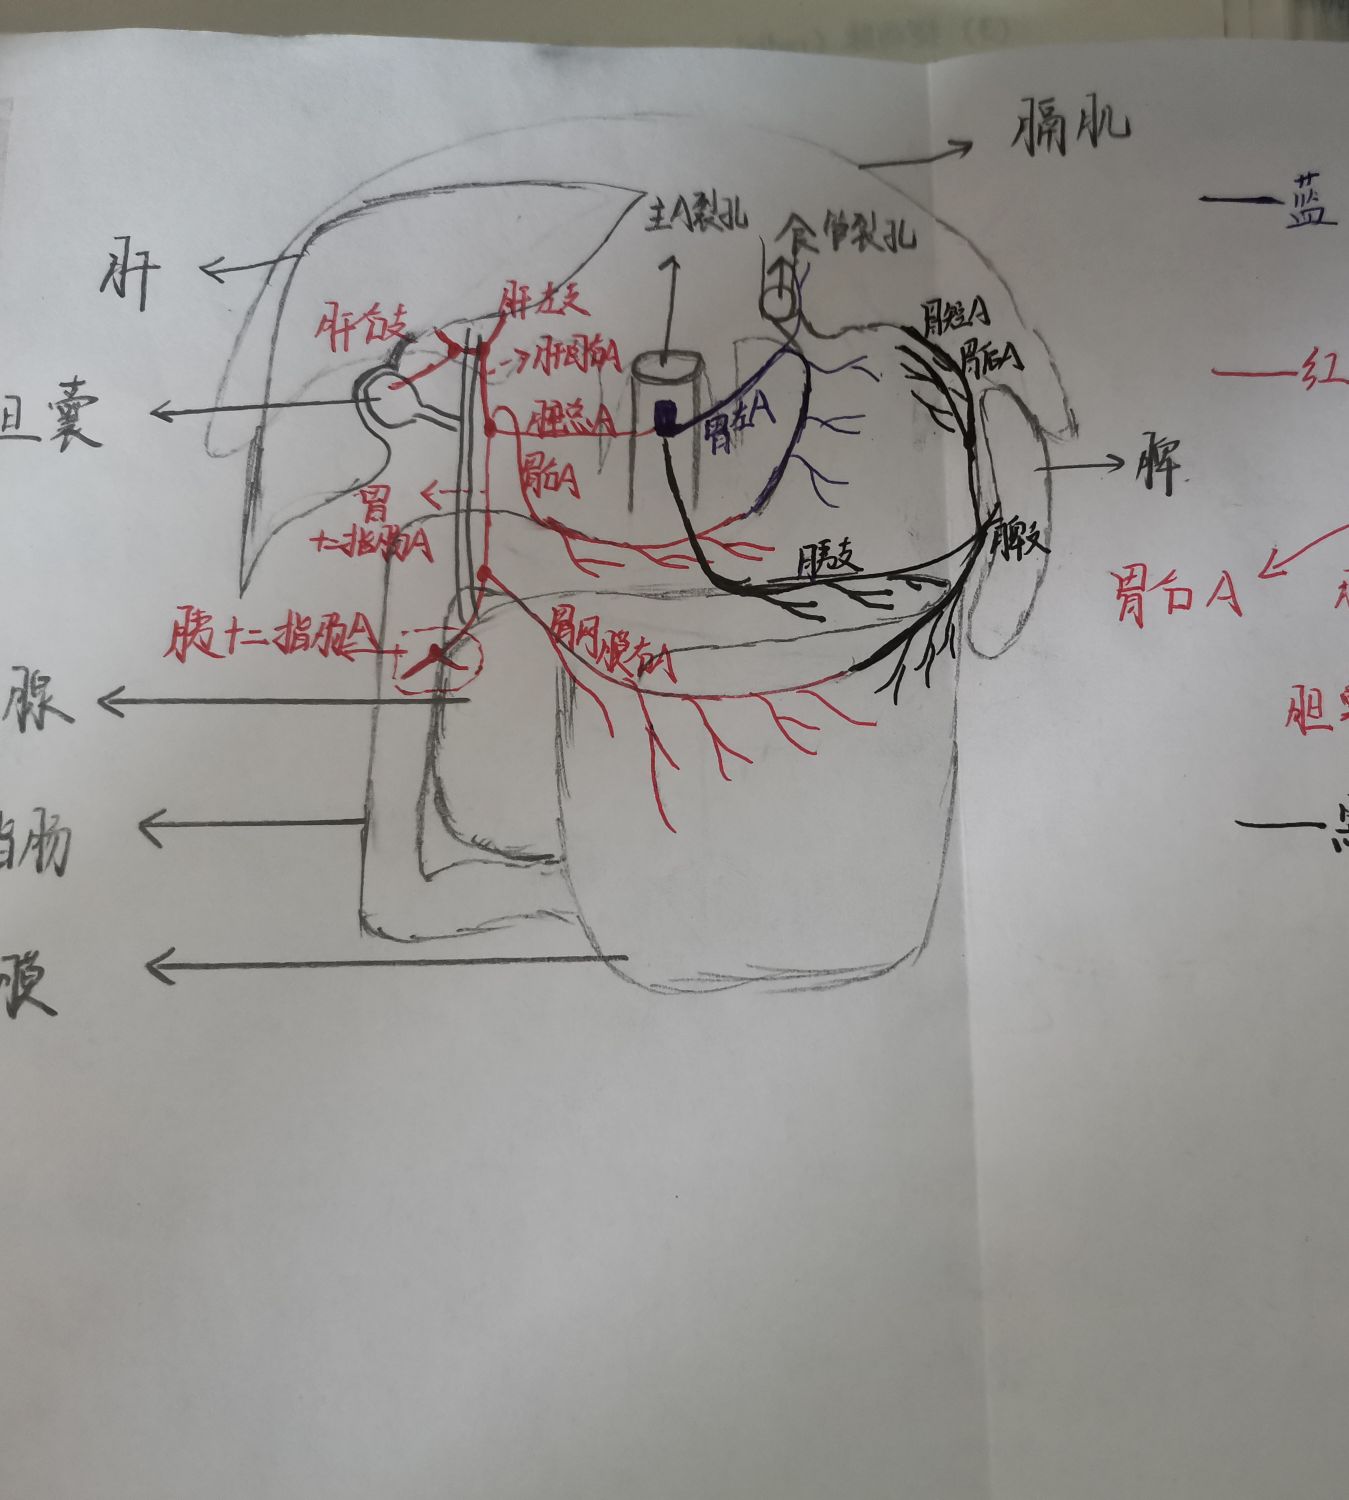 膈肌
蓝
主A裂孔
食管裂孔
肝
肝右支
肝左支
胃短A
胃后A
肝固有A
红
胆囊
肝总A
胃左A
脾
胃右A
胃
十二指肠A
胰支
脾支
胃右A
胰十二指肠A
胃网膜右A
腺
胆
指肠
膜